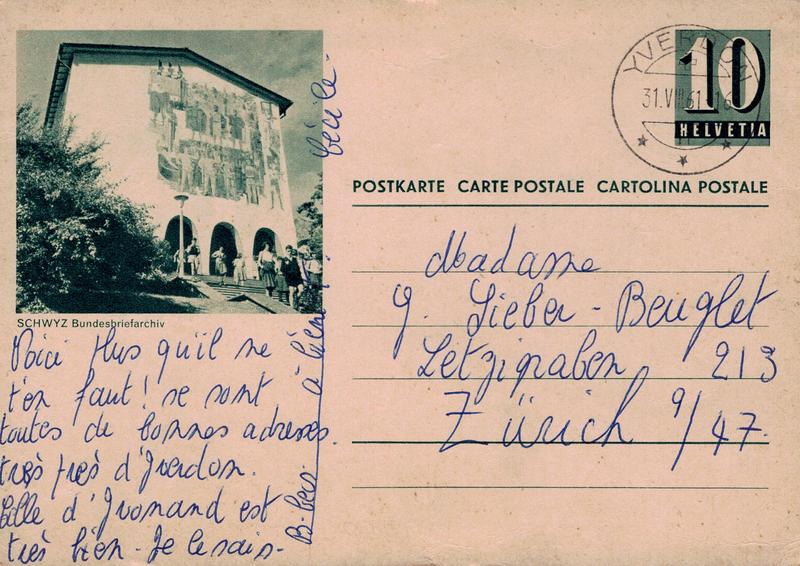 YVERDON
31.VIII.61-16
10
HELVETIA
POSTKARTE CARTE POSTALE CARTOLINA POSTALE
SCHWYZ Bundesbriefarchiv
Madame
Y. Sieber-Beuglet
Letzigraben 213
Zürich 9/47.
Voici plus qu'il ne
t'en faut! se sont
toutes de bonnes adresses.
très près d'Yverdon.
Celle d'Yvonand est
très bien. Je le sais.
B-becs. à
Cécile.